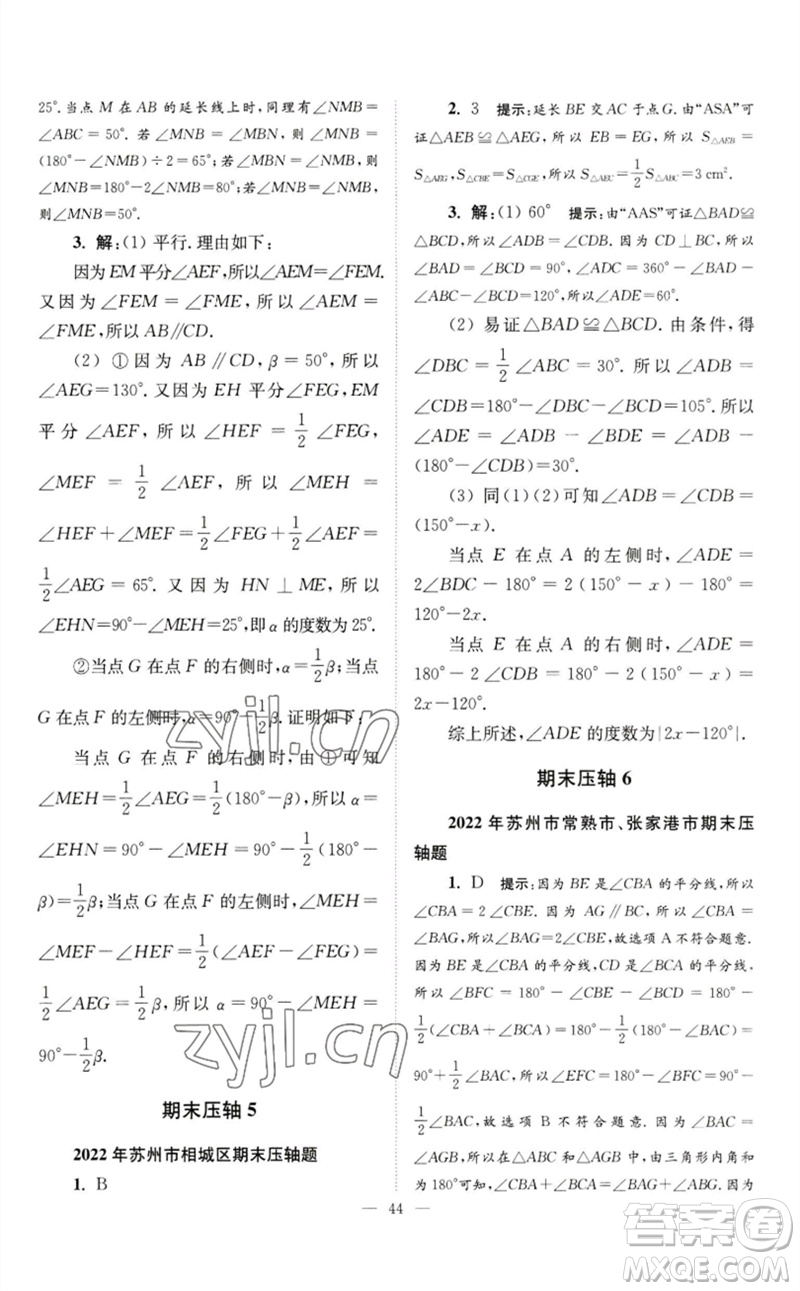 25°. 当点 M 在 AB 的延长线上时,同理有∠NMB=
∠ABC = 50°. 若∠MNB = ∠MBN, 则 ∠MNB =
(180°-∠NMB)÷2=65°;若∠MBN=∠NMB,则
∠MNB=180°-2∠NMB=80°;若∠MNB=∠NMB,则
∠MNB=50°.
3. 解:(1) 平行. 理由如下:
因为EM平分∠AEF,所以∠AEM=∠FEM.
又因为∠FEM = ∠FME, 所以∠AEM =
∠FME,所以 AB∥CD.
(2) ①因为 AB∥CD, β = 50°, 所以
∠AEG=130°. 又因为 EH 平分∠FEG, EM
平分 ∠AEF, 所以 ∠HEF = 1/2 ∠FEG,
∠MEF = 1/2 ∠AEF, 所以 ∠MEH =
∠HEF+∠MEF = 1/2∠FEG+1/2∠AEF =
1/2∠AEG = 65°. 又因为 HN ⊥ ME, 所以
∠EHN=90°-∠MEH=25°,即α的度数为25°.
②当点G在点F的右侧时,α=1/2β;当点
G在点F的左侧时,α=90°-1/2β.证明如下:
当点 G 在点 F 的右侧时,由①可知
∠MEH=1/2∠AEG=1/2(180°-β),所以 α=
∠EHN = 90° - ∠MEH = 90° - 1/2(180° -
β)=1/2β;当点G在点F的左侧时,∠MEH=
∠MEF - ∠HEF = 1/2(∠AEF - ∠FEG) =
1/2∠AEG = 90° - 1/2β. 所以 α = 90° - ∠MEH =
90°-1/2β.
期末压轴 5
2022 年苏州市相城区期末压轴题
1. B
2. 3 提示:延长 BE 交 AC 于点G. 由“ASA”可
证△AEB≌△AEG,所以 EB=EG,所以 S△AEB=
S△AEG,S△CBE=S△CGE,所以 S△AEC=1/2S△ABC=3 cm².
3. 解:(1) 60° 提示:由“AAS”可证△BAD≌
△BCD, 所以∠ADB=∠CDB. 因为 CD⊥BC, 所以
∠BAD = ∠BCD = 90°, 所以∠ADC = 360° - ∠BAD -
∠ABC-∠BCD=120°,所以∠ADE=60°.
(2) 易证△BAD≌△BCD. 由条件, 得
∠DBC = 1/2 ∠ABC = 30°. 所以 ∠ADB =
∠CDB=180°-∠DBC-∠BCD=105°. 所以
∠ADE = ∠ADB - ∠BDE = ∠ADB -
(180°-∠CDB)=30°.
(3) 同(1)(2)可知∠ADB=∠CDB=
(150°-x).
当点 E 在点 A 的左侧时, ∠ADE =
2∠BDC - 180° = 2(150° - x) - 180° =
120°-2x.
当点 E 在点 A 的右侧时, ∠ADE =
180° - 2 ∠CDB = 180° - 2(150° - x) =
2x-120°.
综上所述,∠ADE 的度数为|2x-120°|.
期末压轴 6
2022 年苏州市常熟市、张家港市期末压
轴题
1. D 提示:因为 BE 是∠CBA 的平分线,所以
∠CBA=2∠CBE. 因为 AG∥BC, 所以∠CBA=
∠BAG,所以∠BAG=2∠CBE,故选项 A 不符合题意.
因为BE是∠CBA的平分线,CD是∠BCA的平分线,
所以 ∠BFC = 180° - ∠CBE - ∠BCD = 180° -
1/2(∠CBA+∠BCA)=180°-1/2(180°-∠BAC)=
90°+1/2∠BAC, 所以∠EFC = 180° - ∠BFC = 90° -
1/2∠BAC, 故选项 B 不符合题意. 因为∠BAC =
∠BGF,所以在△ABC 和△AGB 中, 由三角形内角和
为180°可知,∠ACB=180°-∠BAC-∠ABC. 因为
— 44 —
zyjl.cn
zyjl.cn
答案卷
MXQE.COM